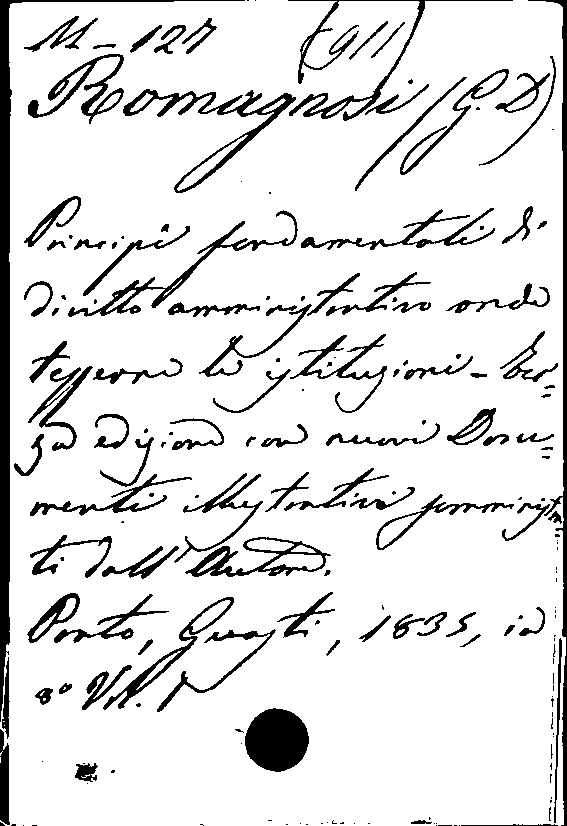 M - 127 (911)
Romagnosi (G. D)
Principî fondamentali di
diritto amministrativo onde
tesserne le istituzioni - Ter=
za edizione con nuovi Docu=
menti illustrativi somministra
ti dall'Autore.
Prato, Guasti, 1835, in
8º Vol. 1